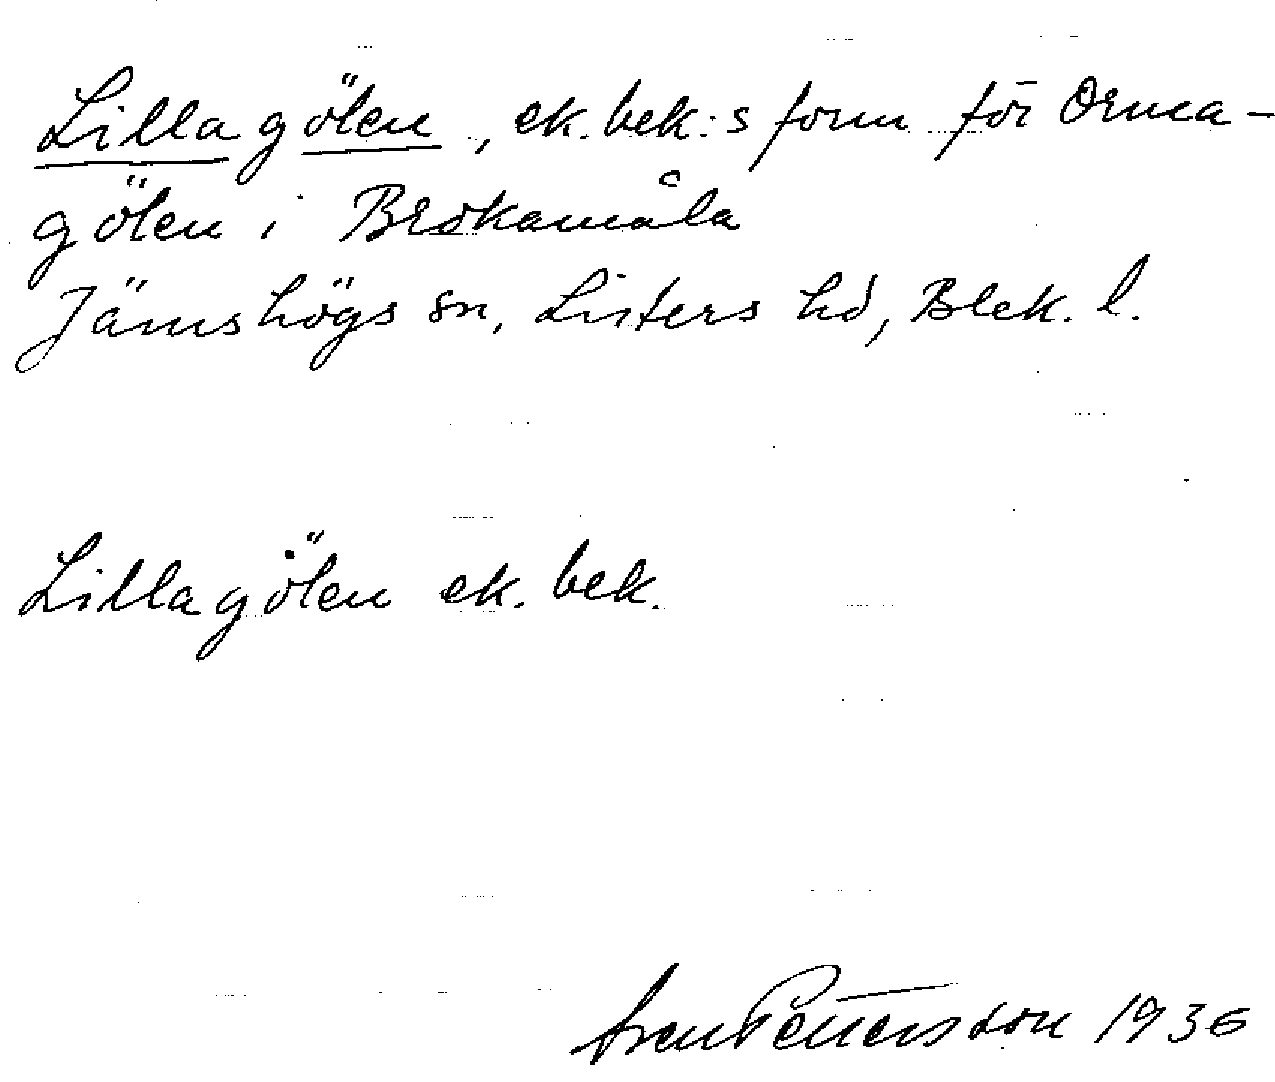 Lillagölen, ek. bek:s form för Orma-
gölen i Brokamåla
Jämshögs sn, Listers hd, Blek. l.
Lillagölen ek. bek.
Sven Pettersson 1936